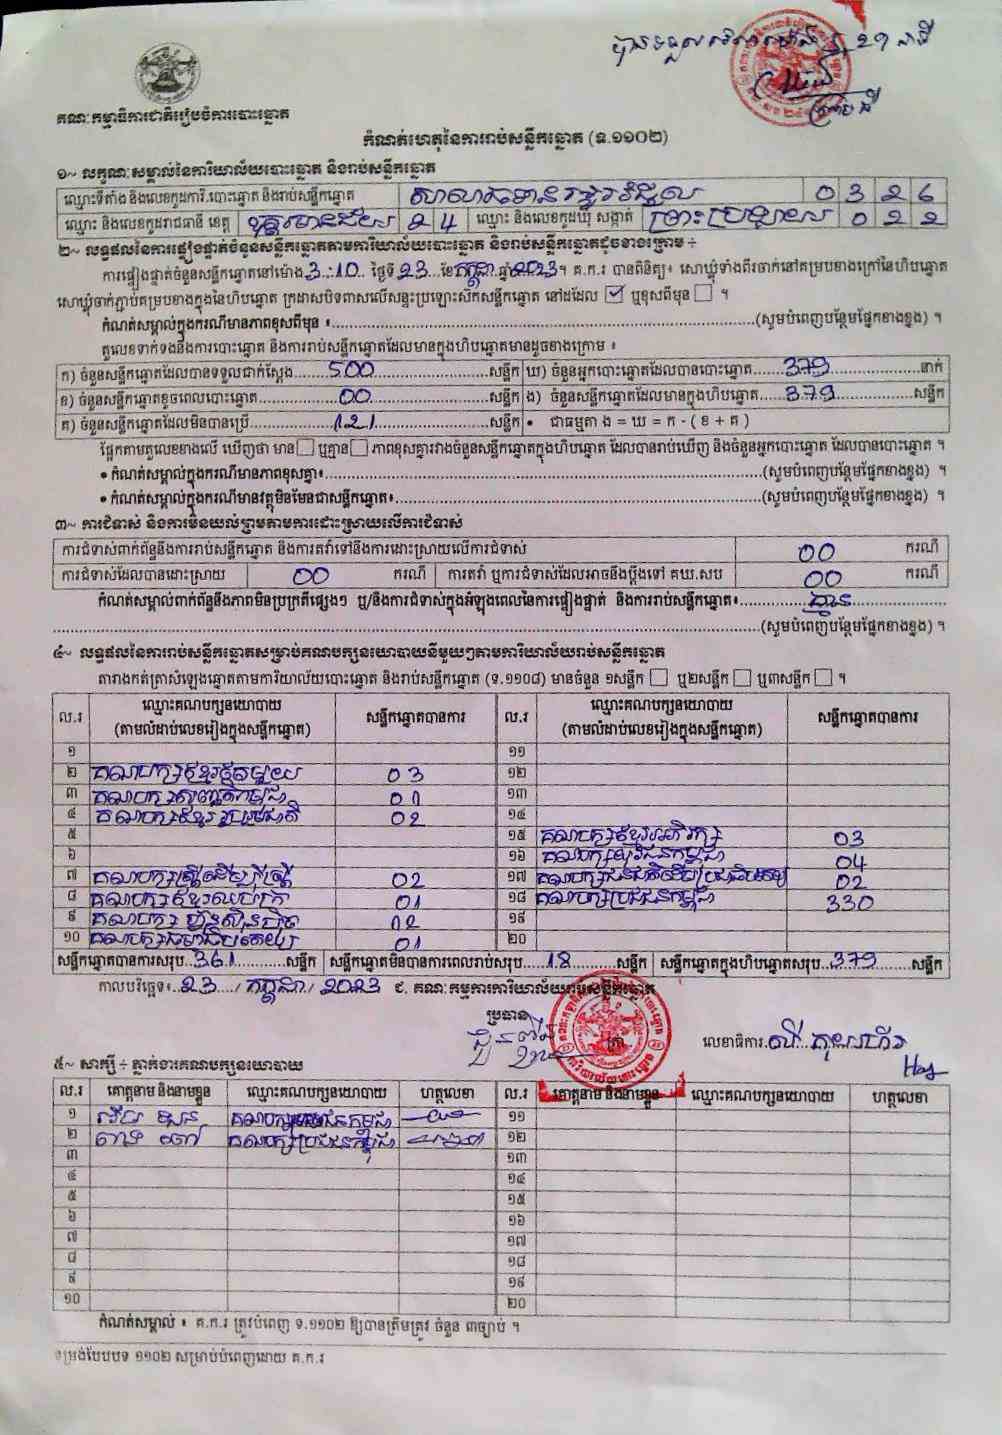 បានទទួល
គណៈកម្មាធិការជាតិរៀបចំការបោះឆ្នោត
កំណត់ហេតុនៃការរាប់សន្លឹកឆ្នោត (ទ.១១០២)
១~ លក្ខណៈសម្គាល់នៃការិយាល័យបោះឆ្នោត និងរាប់សន្លឹកឆ្នោត
ឈ្មោះទីតាំង និងលេខកូដការិ.បោះឆ្នោត និងរាប់សន្លឹកឆ្នោត 0 3 2 6
ឈ្មោះ និងលេខកូដរាជធានី ខេត្ត ឧត្តរមានជ័យ 2 4 ឈ្មោះ និងលេខកូដឃុំ សង្កាត់ ព្រះប្រឡាយ 0 2 2
២~ លទ្ធផលនៃការផ្ទៀងផ្ទាត់ចំនួនសន្លឹកឆ្នោតតាមការិយាល័យបោះឆ្នោត និងរាប់សន្លឹកឆ្នោតដូចខាងក្រោម ÷
ការផ្ទៀងផ្ទាត់ចំនួនសន្លឹកឆ្នោតនៅម៉ោង 3:10 ថ្ងៃទី 23 ខែ កក្កដា ឆ្នាំ 2023 ។ គ.ក.រ បានពិនិត្យ៖ សោឃ្លុំទាំងពីរចាក់នៅគម្របខាងក្រៅនៃហិបឆ្នោត
សោឃ្លុំចាក់ភ្ជាប់គម្របខាងក្នុងនៃហិបឆ្នោត ក្រដាសបិទពាសលើសន្ទះប្រឡោះស៊កសន្លឹកឆ្នោត នៅដដែល ☑ ឬខុសពីមុន ☐ ។
កំណត់សម្គាល់ក្នុងករណីមានភាពខុសពីមុន ៖ (សូមបំពេញបន្ថែមផ្នែកខាងខ្នង) ។
តួលេខទាក់ទងនឹងការបោះឆ្នោត និងការរាប់សន្លឹកឆ្នោតដែលមានក្នុងហិបឆ្នោតមានដូចខាងក្រោម ៖
ក) ចំនួនសន្លឹកឆ្នោតដែលបានទទួលជាក់ស្តែង 500 សន្លឹក ឃ) ចំនួនអ្នកបោះឆ្នោតដែលបានបោះឆ្នោត 379 នាក់
ខ) ចំនួនសន្លឹកឆ្នោតខូចពេលបោះឆ្នោត 00 សន្លឹក ង) ចំនួនសន្លឹកឆ្នោតដែលមានក្នុងហិបឆ្នោត 379 សន្លឹក
គ) ចំនួនសន្លឹកឆ្នោតដែលមិនបានប្រើ 121 សន្លឹក • ជាធម្មតា ង = ឃ = ក - ( ខ + គ )
ផ្អែកតាមតួលេខខាងលើ ឃើញថា មាន ☐ ឬគ្មាន ☐ ភាពខុសគ្នារវាងចំនួនសន្លឹកឆ្នោតក្នុងហិបឆ្នោត ដែលបានរាប់ឃើញ និងចំនួនអ្នកបោះឆ្នោត ដែលបានបោះឆ្នោត ។
• កំណត់សម្គាល់ក្នុងករណីមានភាពខុសគ្នា៖ (សូមបំពេញបន្ថែមផ្នែកខាងខ្នង) ។
• កំណត់សម្គាល់ក្នុងករណីមានវត្ថុមិនមែនជាសន្លឹកឆ្នោត៖ (សូមបំពេញបន្ថែមផ្នែកខាងខ្នង) ។
៣~ ការជំទាស់ និងការមិនយល់ព្រមតាមការដោះស្រាយលើការជំទាស់
ការជំទាស់ពាក់ព័ន្ធនឹងការរាប់សន្លឹកឆ្នោត និងការតវ៉ាទៅនឹងការដោះស្រាយលើការជំទាស់ 00 ករណី
ការជំទាស់ដែលបានដោះស្រាយ 00 ករណី ការតវ៉ា ឬការជំទាស់ដែលអាចនឹងប្តឹងទៅ គឃ.សប 00 ករណី
កំណត់សម្គាល់ពាក់ព័ន្ធនឹងភាពមិនប្រក្រតីផ្សេងៗ ឬ/និងការជំទាស់ក្នុងអំឡុងពេលនៃការផ្ទៀងផ្ទាត់ និងការរាប់សន្លឹកឆ្នោត៖ គ្មាន
(សូមបំពេញបន្ថែមផ្នែកខាងខ្នង) ។
៤~ លទ្ធផលនៃការរាប់សន្លឹកឆ្នោតសម្រាប់គណបក្សនយោបាយនីមួយៗតាមការិយាល័យរាប់សន្លឹកឆ្នោត
តារាងកត់ត្រាសំឡេងឆ្នោតតាមការិយាល័យបោះឆ្នោត និងរាប់សន្លឹកឆ្នោត (ទ.១១០៨) មានចំនួន ១សន្លឹក ☐ ឬ២សន្លឹក ☐ ឬ៣សន្លឹក ☐ ។
ល.រ ឈ្មោះគណបក្សនយោបាយ (តាមលំដាប់លេខរៀងក្នុងសន្លឹកឆ្នោត) សន្លឹកឆ្នោតបានការ ល.រ ឈ្មោះគណបក្សនយោបាយ (តាមលំដាប់លេខរៀងក្នុងសន្លឹកឆ្នោត) សន្លឹកឆ្នោតបានការ
១ ១១
២ គណបក្សខ្មែរតែមួយ 03 ១២
៣ គណបក្សសញ្ជាតិកម្ពុជា 01 ១៣
៤ គណបក្សខ្មែររួបរួមជាតិ 02 ១៤
៥ ១៥ គណបក្សខ្មែរអភិរក្ស 03
៦ ១៦ គណបក្សយុវជនកម្ពុជា 04
៧ គណបក្សស្ត្រីដើម្បីស្ត្រី 02 ១៧ គណបក្សជនជាតិដើមប្រជាធិបតេយ្យ 02
៨ គណបក្សខ្មែរឈប់ក្រ 01 ១៨ គណបក្សប្រជាជនកម្ពុជា 330
៩ គណបក្ស ហ្វ៊ុនស៊ិនប៉ិច 12 ១៩
១០ គណបក្សធម្មាធិបតេយ្យ 01 ២០
សន្លឹកឆ្នោតបានការសរុប 361 សន្លឹក សន្លឹកឆ្នោតមិនបានការពេលរាប់សរុប 18 សន្លឹក សន្លឹកឆ្នោតក្នុងហិបឆ្នោតសរុប 379 សន្លឹក
កាលបរិច្ឆេទ៖ 23 / កក្កដា / 2023 ជ. គណៈកម្មការការិយាល័យរាប់សន្លឹកឆ្នោត
ប្រធាន
លេខាធិការ
៥~ សាក្សី ÷ ភ្នាក់ងារគណបក្សនយោបាយ
ល.រ គោត្តនាម និងនាមខ្លួន ឈ្មោះគណបក្សនយោបាយ ហត្ថលេខា ល.រ គោត្តនាម និងនាមខ្លួន ឈ្មោះគណបក្សនយោបាយ ហត្ថលេខា
១ គណបក្សប្រជាជនកម្ពុជា ១១
២ គណបក្សប្រជាជនកម្ពុជា ១២
៣ ១៣
៤ ១៤
៥ ១៥
៦ ១៦
៧ ១៧
៨ ១៨
៩ ១៩
១០ ២០
កំណត់សម្គាល់ ៖ គ.ក.រ ត្រូវបំពេញ ទ.១១០២ ឱ្យបានត្រឹមត្រូវ ចំនួន ៣ច្បាប់ ។
ទម្រង់បែបបទ ១១០២ សម្រាប់បំពេញដោយ គ.ក.រ